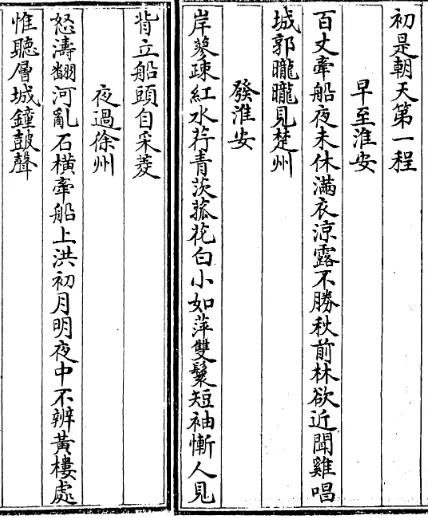 初是朝天第一程
早至淮安
百丈牽船夜未休滿衣涼露不勝秋前林欲近聞雞唱
城郭朧朧見楚州
發淮安
岸蓼疎紅水荇青茨菰花白小如萍雙鬟短袖慚人見
背立船頭自采菱
夜過徐州
怒濤翻河亂石橫牽船上洪初月明夜中不辨黃樓處
惟聽層城鐘鼓聲